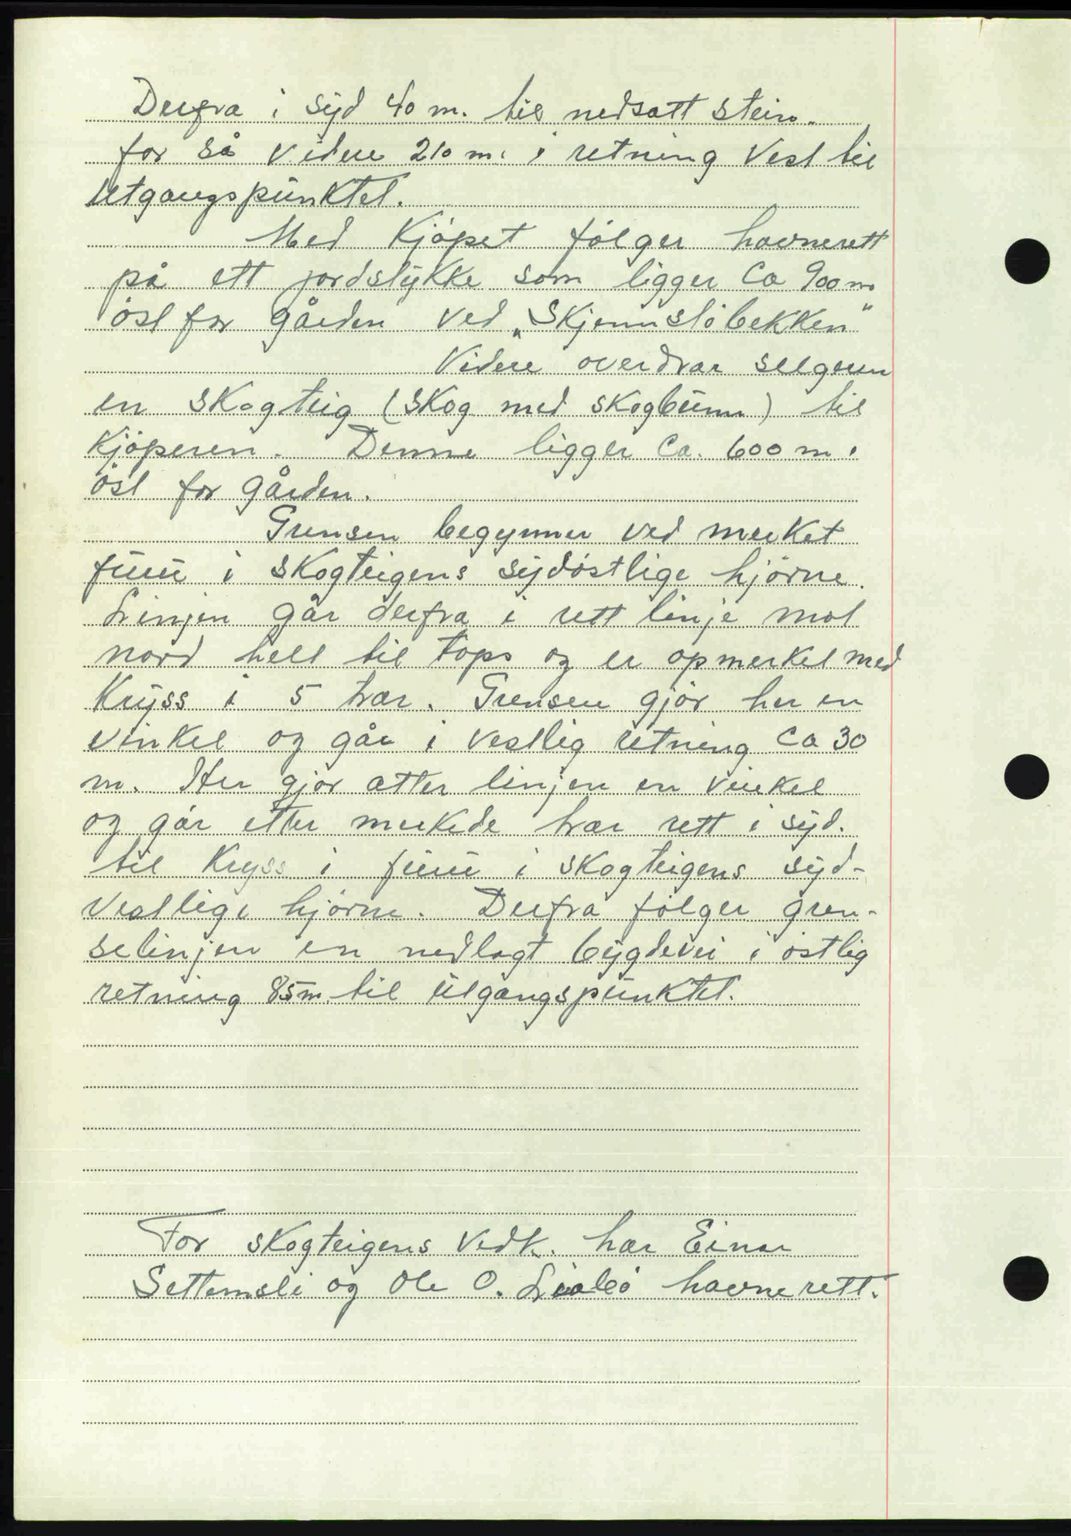 Derfra i syd 40 m. til nedsatt stein.
for så videre 210 m. i retning Vest til
utgangspunktet.
Med Kjøpet følger havnerett
på ett jordstykke som ligger Ca 900 m.
øst for gården ved "Skjennsløbekken"
Videre overdrar selgeren
en skogteig (Skog med skogbunn) til
Kjøperen. Denne ligger Ca. 600 m.
øst for gården.
Grensen begynner ved merket
furu i skogteigens sydøstlige hjørne.
Linjen går derfra i rett linje mot
nord helt til tops og er opmerket med
Kryss i 5 trær. Grensen gjør her en
vinkel og går i vestlig retning Ca 30
m. Her gjør atter linjen en vinkel
og går etter merkede trær rett i syd.
til Kryss i furu i skogteigens syd-
vestlige hjørne. Derfra følger gren-
selinjen en nedlagt bygdevei i østlig
retning 85 m til utgangspunktet.
For skogteigens Vedk. har Einar
Settemsli og Ole O. havnerett.